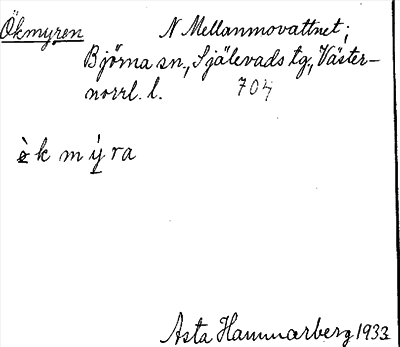 Ökmyren N Mellanmovattnet;
Björna sn., Själevads tg., Väster-
norrl. l. 704
ö̀k mýra
Asta Hammarberg 1933